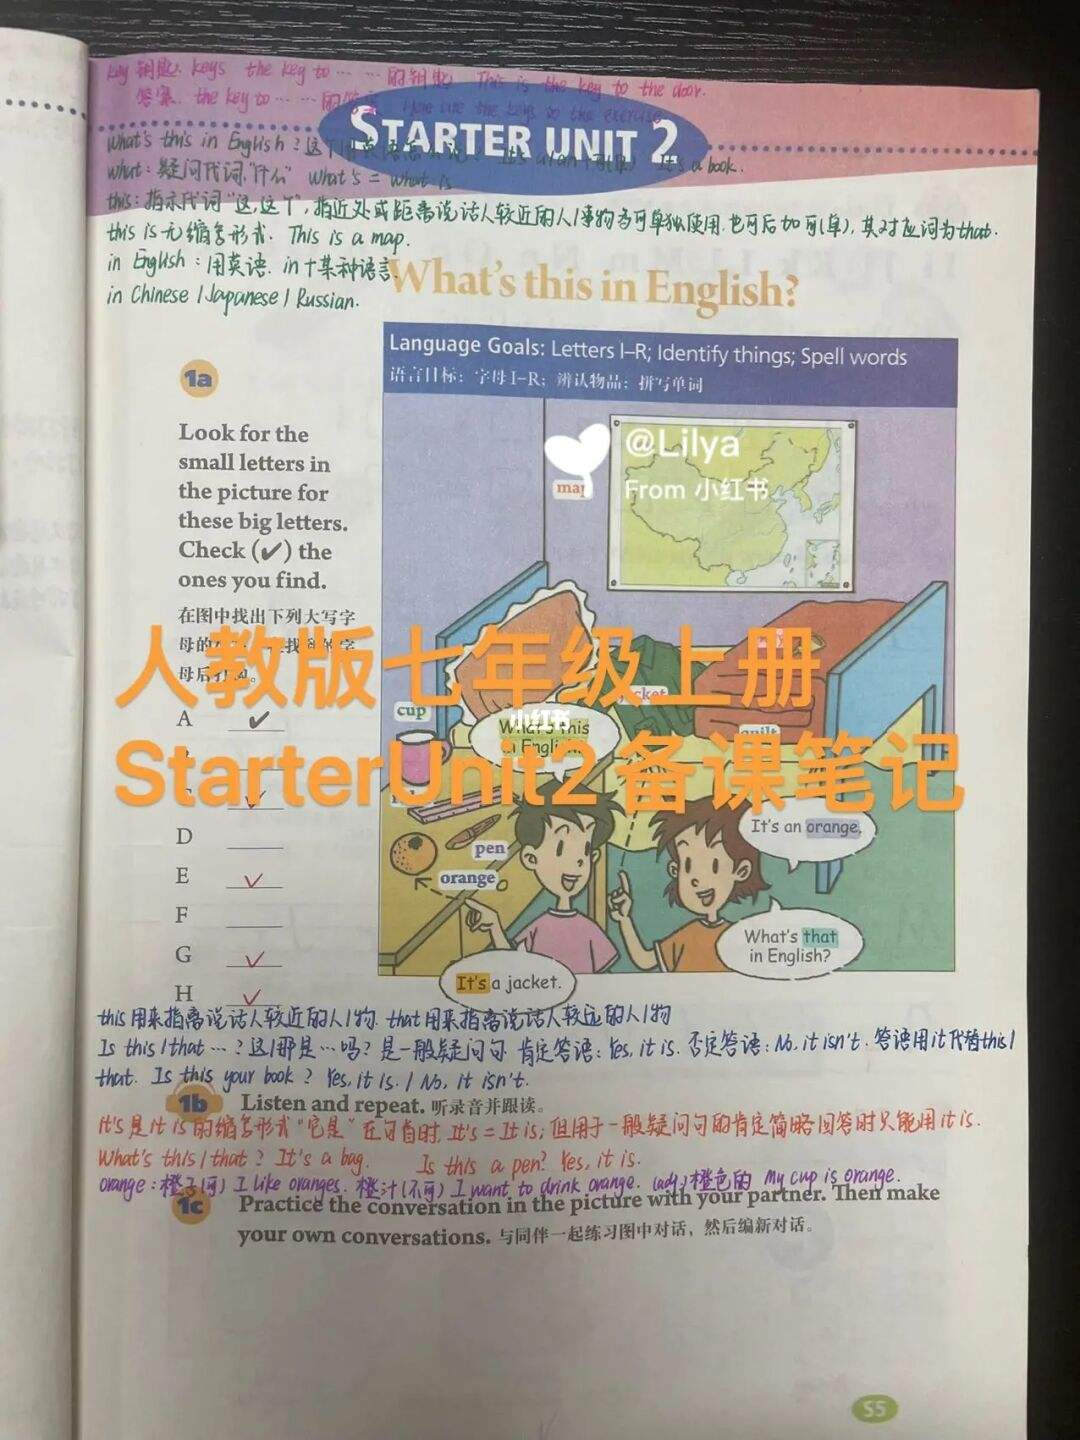 key 钥匙. keys the key to …… 的钥匙 This is the key to the door.
答案. the key to …… 的答案 Here are the keys to the exercise
STARTER UNIT 2
What's this in English? It's a book.
what: 疑问代词,"什么" What's = What is
this: 指示代词"这,这个", 指近处或距离说话人较近的人/事物 可单独使用,也可后加可(单), 其对应词为that.
this is 无缩写形式. This is a map.
in English: 用英语. in+某种语言
in Chinese / Japanese / Russian.
What's this in English?
Language Goals: Letters I–R; Identify things; Spell words
语言目标：字母 I–R；辨认物品；拼写单词
1a
Look for the
small letters in
the picture for
these big letters.
Check (✔) the
ones you find.
在图中找出下列大写字
母的
母后
A ✔
C ✓
D
E ✓
F
G ✓
H ✓
@Lilya
From 小红书
map
cup
小红书
What's this
in English?
quilt
pen
orange
It's an orange.
What's that
in English?
It's a jacket.
人教版七年级上册
StarterUnit2备课笔记
this用来指离说话人较近的人/物. that用来指离说话人较远的人/物
Is this/that …? 这/那是…吗? 是一般疑问句 肯定答语: Yes, it is. 否定答语: No, it isn't. 答语用it代替this/
that. Is this your book? Yes, it is. / No, it isn't.
1b Listen and repeat. 听录音并跟读。
it's 是 it is 的缩写形式 "它是" 在句首时, It's = It is; 但用于一般疑问句的肯定简略回答时只能用 it is.
What's this/that? It's a bag. Is this a pen? Yes, it is.
orange: 橙子(可) I like oranges. 橙汁(不可) I want to drink orange. (adj.)橙色的 My cup is orange.
1c Practice the conversation in the picture with your partner. Then make
your own conversations. 与同伴一起练习图中对话，然后编新对话。
S5